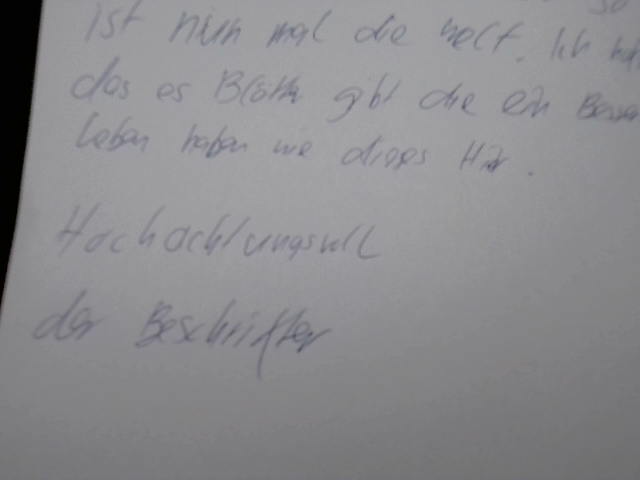 so
ist nun mal die welt. Ich
das es Blätter gibt die ein
leben haben wie dieses Hir.
Hochachtungsvoll
der Beschrifter